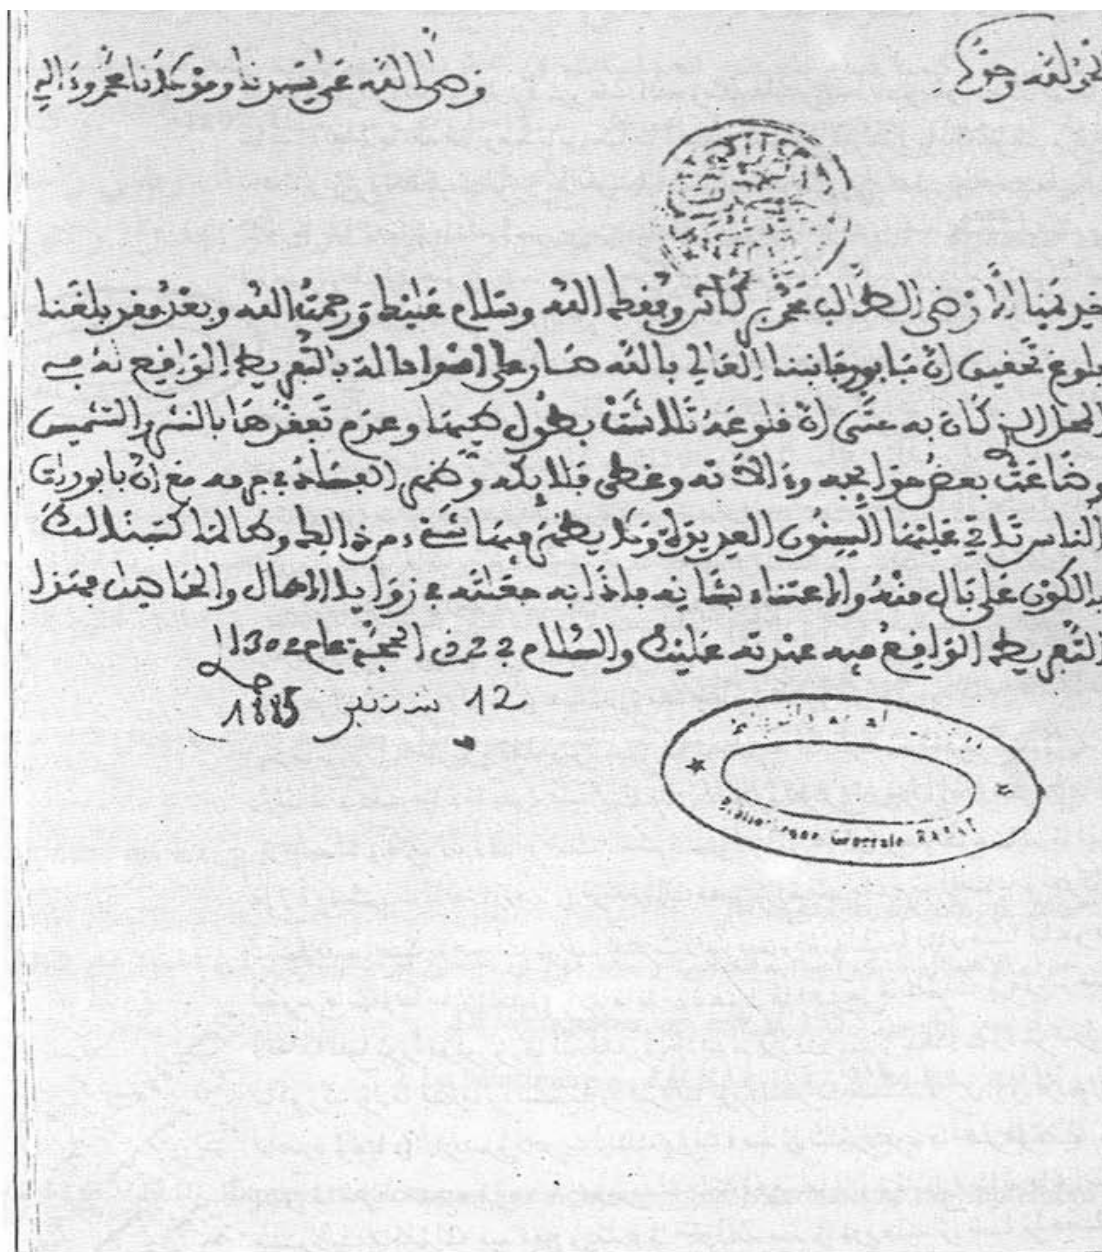 الحمد لله وحده
وصلى الله على سيدنا ومولانا محمد وآله
خديمنا الأرضى الطالب محمد بن وفقك الله وسلام عليك ورحمة الله وبعد فقد بلغنا
بلوغ تحقيق أن بابور جنابنا العالي بالله صار على بالتفريط الواقع له في
المحل الذي كان به حتى أن قلوعه تلاشت بطول طيها وعدم تفقدها بالنشر والتشميس
وضاعت بعض حوائجه و وغطى وظهر الفساد في جرمه مع أن بابورات
الناس تاتي عليها السنون العديدة ولا يظهر فيها شيء من ذلك وطالما كتبنا لك
بالكون على بال منه والاعتناء بشأنه فإذا به جعلته في زوايا الإهمال والحاصل فهذا
التفريط الواقع فيه عهدته عليك والسلام في 22 الحجة عام 1302
12 شتنبر 1885
Bibliothèque Générale RABAT